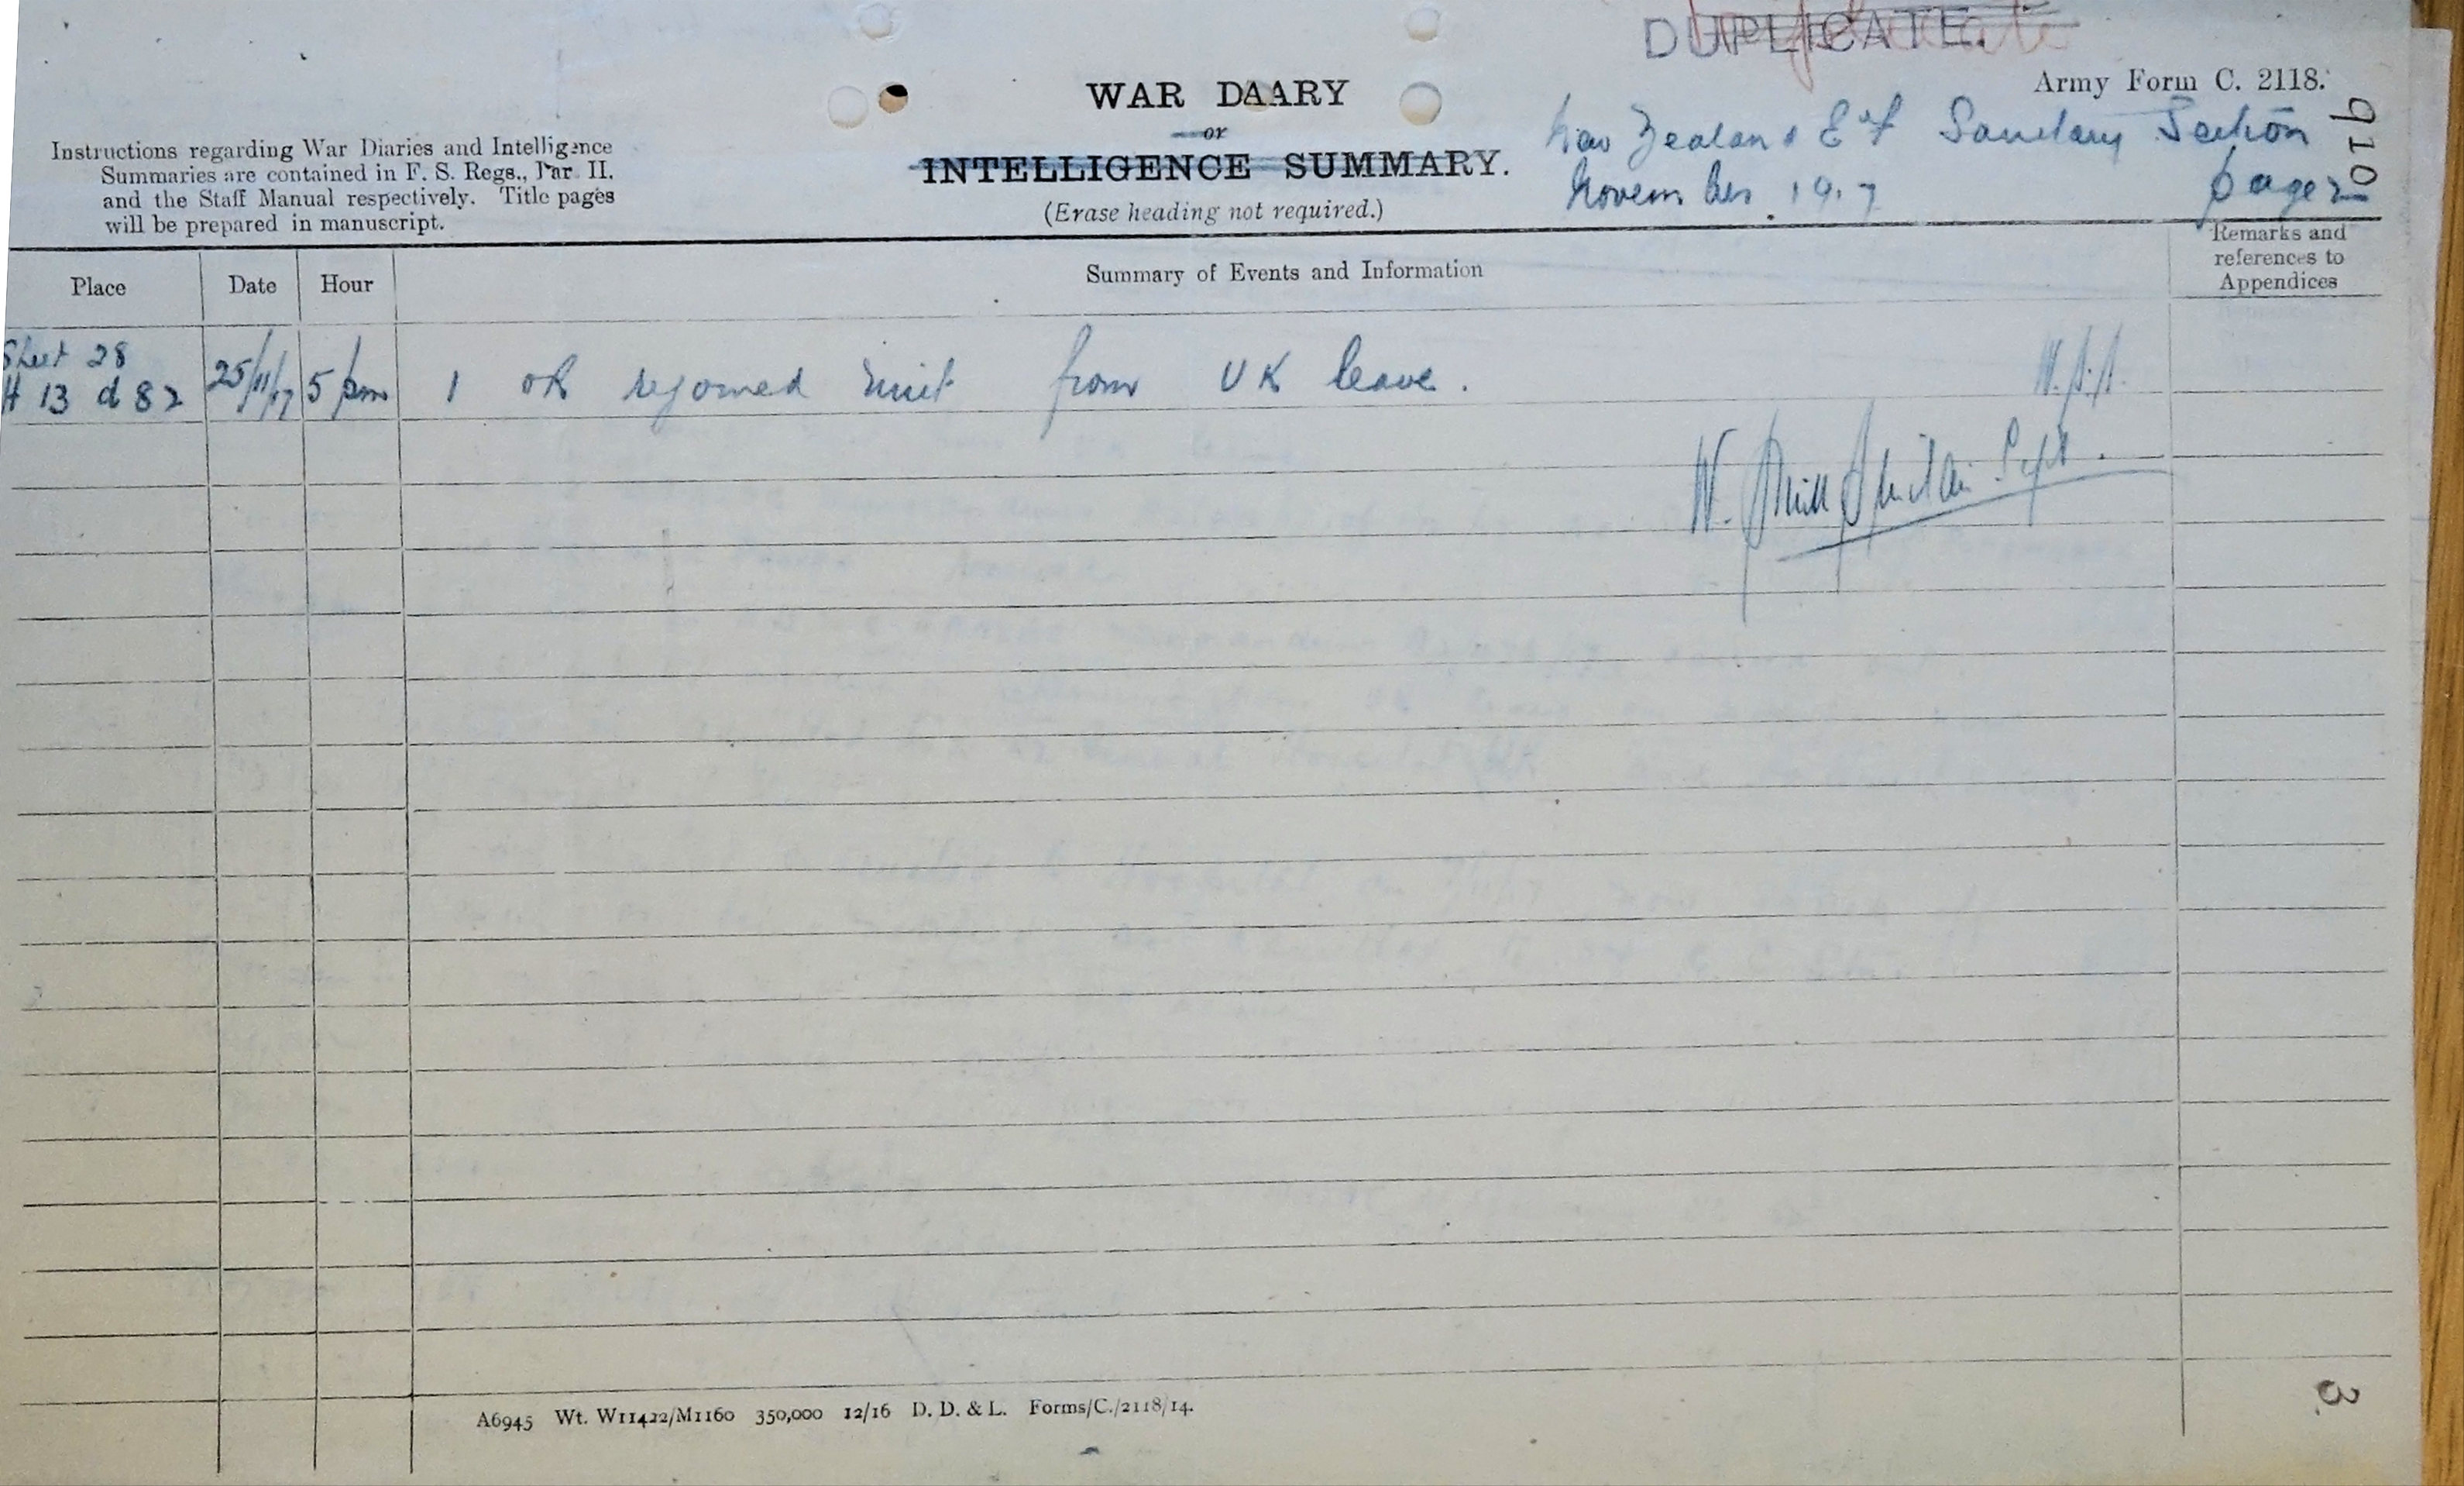 DUPLICATE.
Army Form C. 2118.
WAR DAARY
or
INTELLIGENCE SUMMARY.
(Erase heading not required.)
Instructions regarding War Diaries and Intelligence
Summaries are contained in F. S. Regs., Par II.
and the Staff Manual respectively. Title pages
will be prepared in manuscript.
New Zealand E & F Sanitary Section
November 1917 page 2
910
Place Date Hour Summary of Events and Information Remarks and
references to
Appendices
Sheet 28
H 13 d 82 25/11/17 5 pm 1 OR rejoined unit from UK leave.
W.
3
A6945 Wt. W11422/M1160 350,000 12/16 D. D. & L. Forms/C./2118/14.